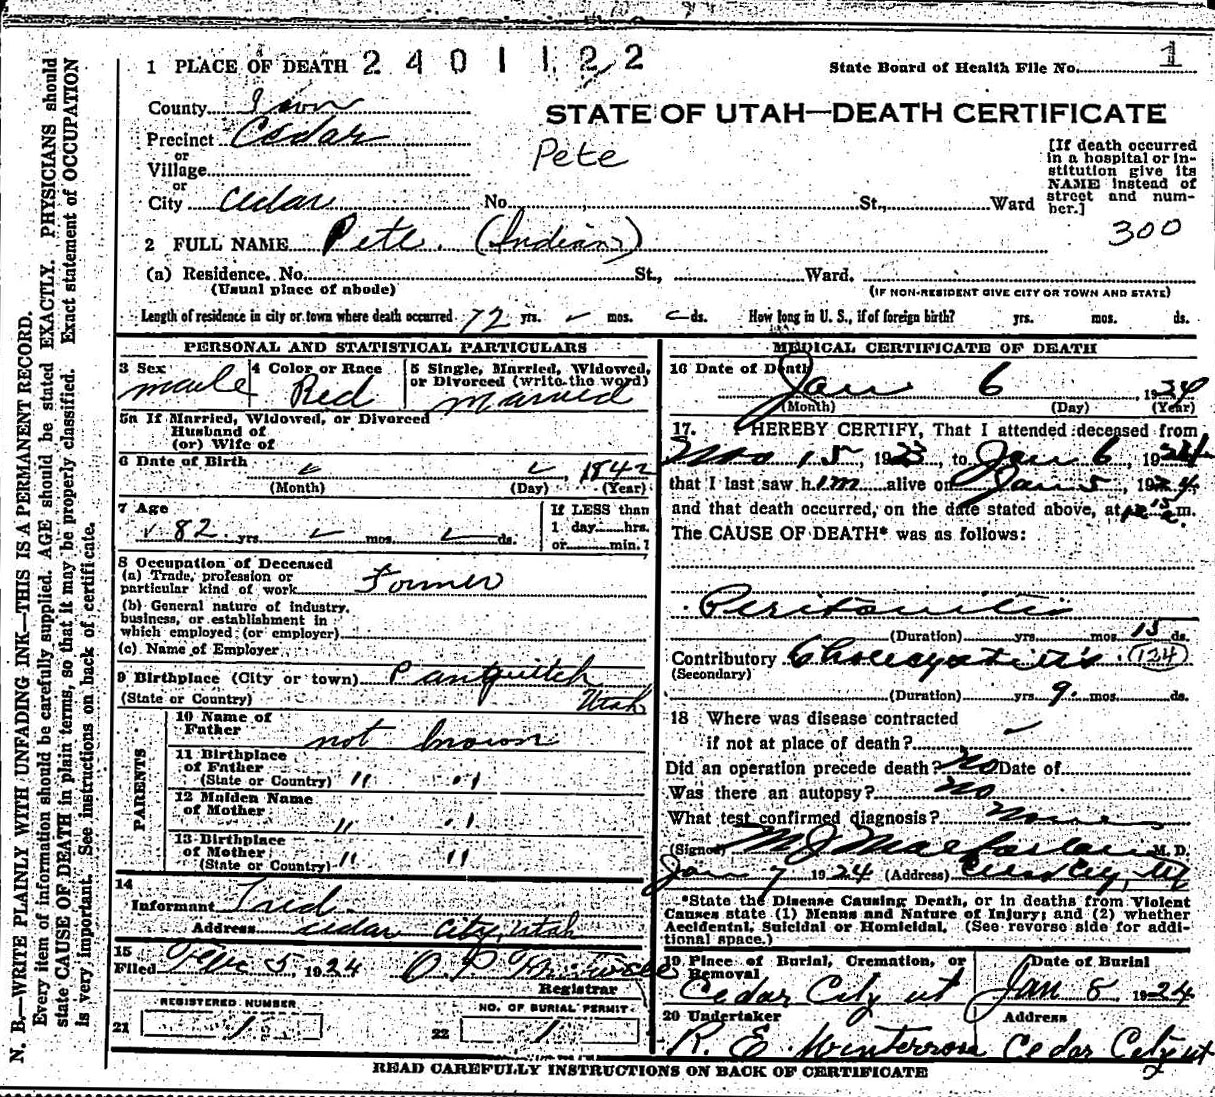 1 PLACE OF DEATH 2401122
State Board of Health File No. 1
County Iron
STATE OF UTAH—DEATH CERTIFICATE
Precinct Cedar
Pete
or
Village
or
City Cedar No. St., Ward
[If death occurred
in a hospital or in-
stitution give its
NAME instead of
street and num-
ber.]
300
2 FULL NAME Pete. (Indian)
(a) Residence. No. St., Ward.
(Usual place of abode)
(IF NON-RESIDENT GIVE CITY OR TOWN AND STATE)
Length of residence in city or town where death occurred 72 yrs. mos. ds. How long in U. S., if of foreign birth? yrs. mos. ds.
PERSONAL AND STATISTICAL PARTICULARS
3 Sex
male
4 Color or Race
Red
5 Single, Married, Widowed,
or Divorced (write the word)
Married
5a If Married, Widowed, or Divorced
Husband of
(or) Wife of
6 Date of Birth
1842
(Month) (Day) (Year)
7 Age
82 yrs. mos. ds.
If LESS than
1 day hrs.
or min.?
8 Occupation of Deceased
(a) Trade, profession or
particular kind of work Former
(b) General nature of industry,
business, or establishment in
which employed (or employer)
(c) Name of Employer
9 Birthplace (City or town) Panquitch
(State or Country) Utah
PARENTS
10 Name of
Father not known
11 Birthplace
of Father
(State or Country) " "
12 Maiden Name
of Mother " "
13 Birthplace
of Mother
(State or Country) " "
14
Informant Fred
Address Cedar City, Utah
15
Filed Feb 5 1924
Registrar
REGISTERED NUMBER
21 1
NO. OF BURIAL PERMIT
22 1
MEDICAL CERTIFICATE OF DEATH
16 Date of Death
Jan 6, 1924
(Month) (Day) (Year)
17. I HEREBY CERTIFY, That I attended deceased from
Nov 15, 1923, to Jan 6, 1924
that I last saw him alive on Jan 5, 1924
and that death occurred, on the date stated above, at m.
The CAUSE OF DEATH* was as follows:
Peritonitis
(Duration) yrs. mos. 15 ds.
Contributory 124
(Secondary)
(Duration) yrs. 9. mos. ds.
18 Where was disease contracted
if not at place of death?
Did an operation precede death? no Date of
Was there an autopsy? no
What test confirmed diagnosis?
(Signed) M J Macfarlane M. D.
Jan 7 1924 (Address) Cedar City, Ut
*State the Disease Causing Death, or in deaths from Violent
Causes state (1) Means and Nature of Injury; and (2) whether
Accidental, Suicidal or Homicidal. (See reverse side for addi-
tional space.)
19 Place of Burial, Cremation, or
Removal
Cedar City ut
Date of Burial
Jan 8 1924
20 Undertaker
R. E. Winterrose
Address
Cedar City ut
READ CAREFULLY INSTRUCTIONS ON BACK OF CERTIFICATE
N. B.—WRITE PLAINLY WITH UNFADING INK—THIS IS A PERMANENT RECORD.
Every item of information should be carefully supplied. AGE should be stated EXACTLY. PHYSICIANS should
state CAUSE OF DEATH in plain terms, so that it may be properly classified. Exact statement of OCCUPATION
is very important. See instructions on back of certificate.